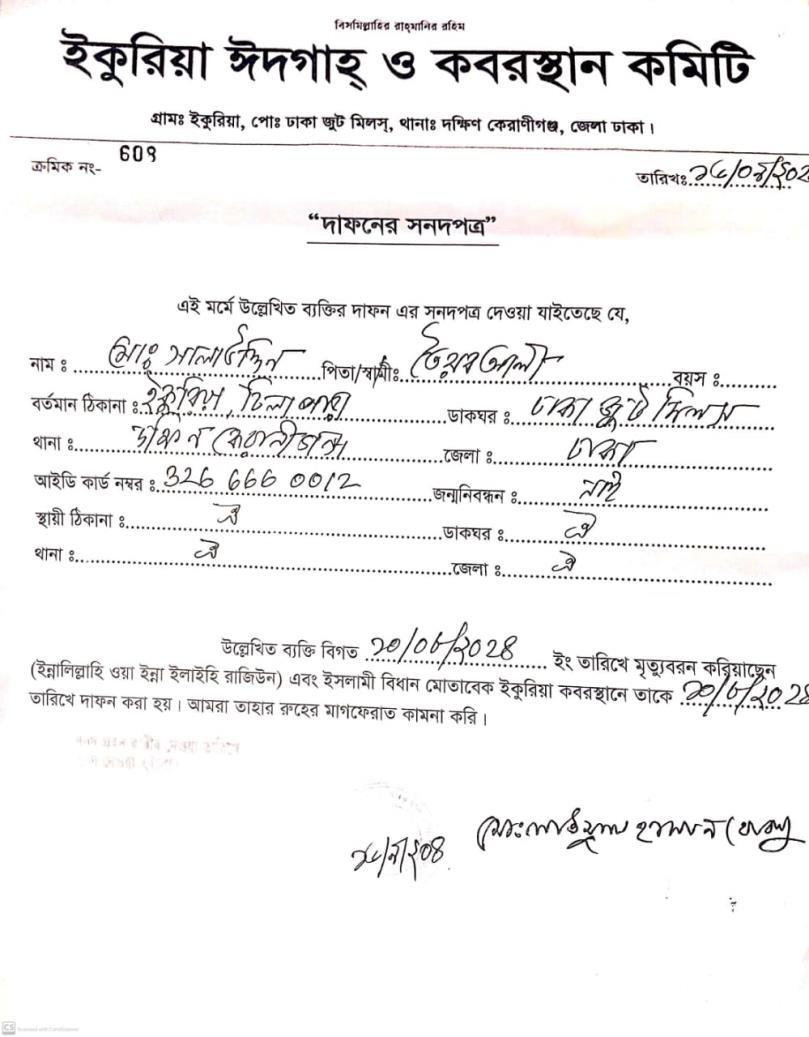 বিসমিল্লাহির রাহমানির রহিম
ইকুরিয়া ঈদগাহ্ ও কবরস্থান কমিটি
গ্রামঃ ইকুরিয়া, পোঃ ঢাকা জুট মিলস্, থানাঃ দক্ষিণ কেরাণীগঞ্জ, জেলা ঢাকা।
ক্রমিক নং- 609
তারিখঃ
“দাফনের সনদপত্র”
এই মর্মে উল্লেখিত ব্যক্তির দাফন এর সনদপত্র দেওয়া যাইতেছে যে,
নাম ঃ মোঃ সালাউদ্দিন পিতা/স্বামীঃ তৈয়ব আলী বয়স ঃ
বর্তমান ঠিকানা ঃ ইকুরিয়া, ডাকঘর ঃ ঢাকা জুট মিলস
থানা ঃ দক্ষিন কেরানীগঞ্জ জেলা ঃ ঢাকা
আইডি কার্ড নম্বর ঃ 326 666 0012 জন্মনিবন্ধন ঃ নাই
স্থায়ী ঠিকানা ঃ ঐ ডাকঘর ঃ ঐ
থানা ঃ ঐ জেলা ঃ ঐ
উল্লেখিত ব্যক্তি বিগত ইং তারিখে মৃত্যুবরন করিয়াছেন
(ইন্নালিল্লাহি ওয়া ইন্না ইলাইহি রাজিউন) এবং ইসলামী বিধান মোতাবেক ইকুরিয়া কবরস্থানে তাকে
তারিখে দাফন করা হয়। আমরা তাহার রুহের মাগফেরাত কামনা করি।
CS Scanned with CamScanner